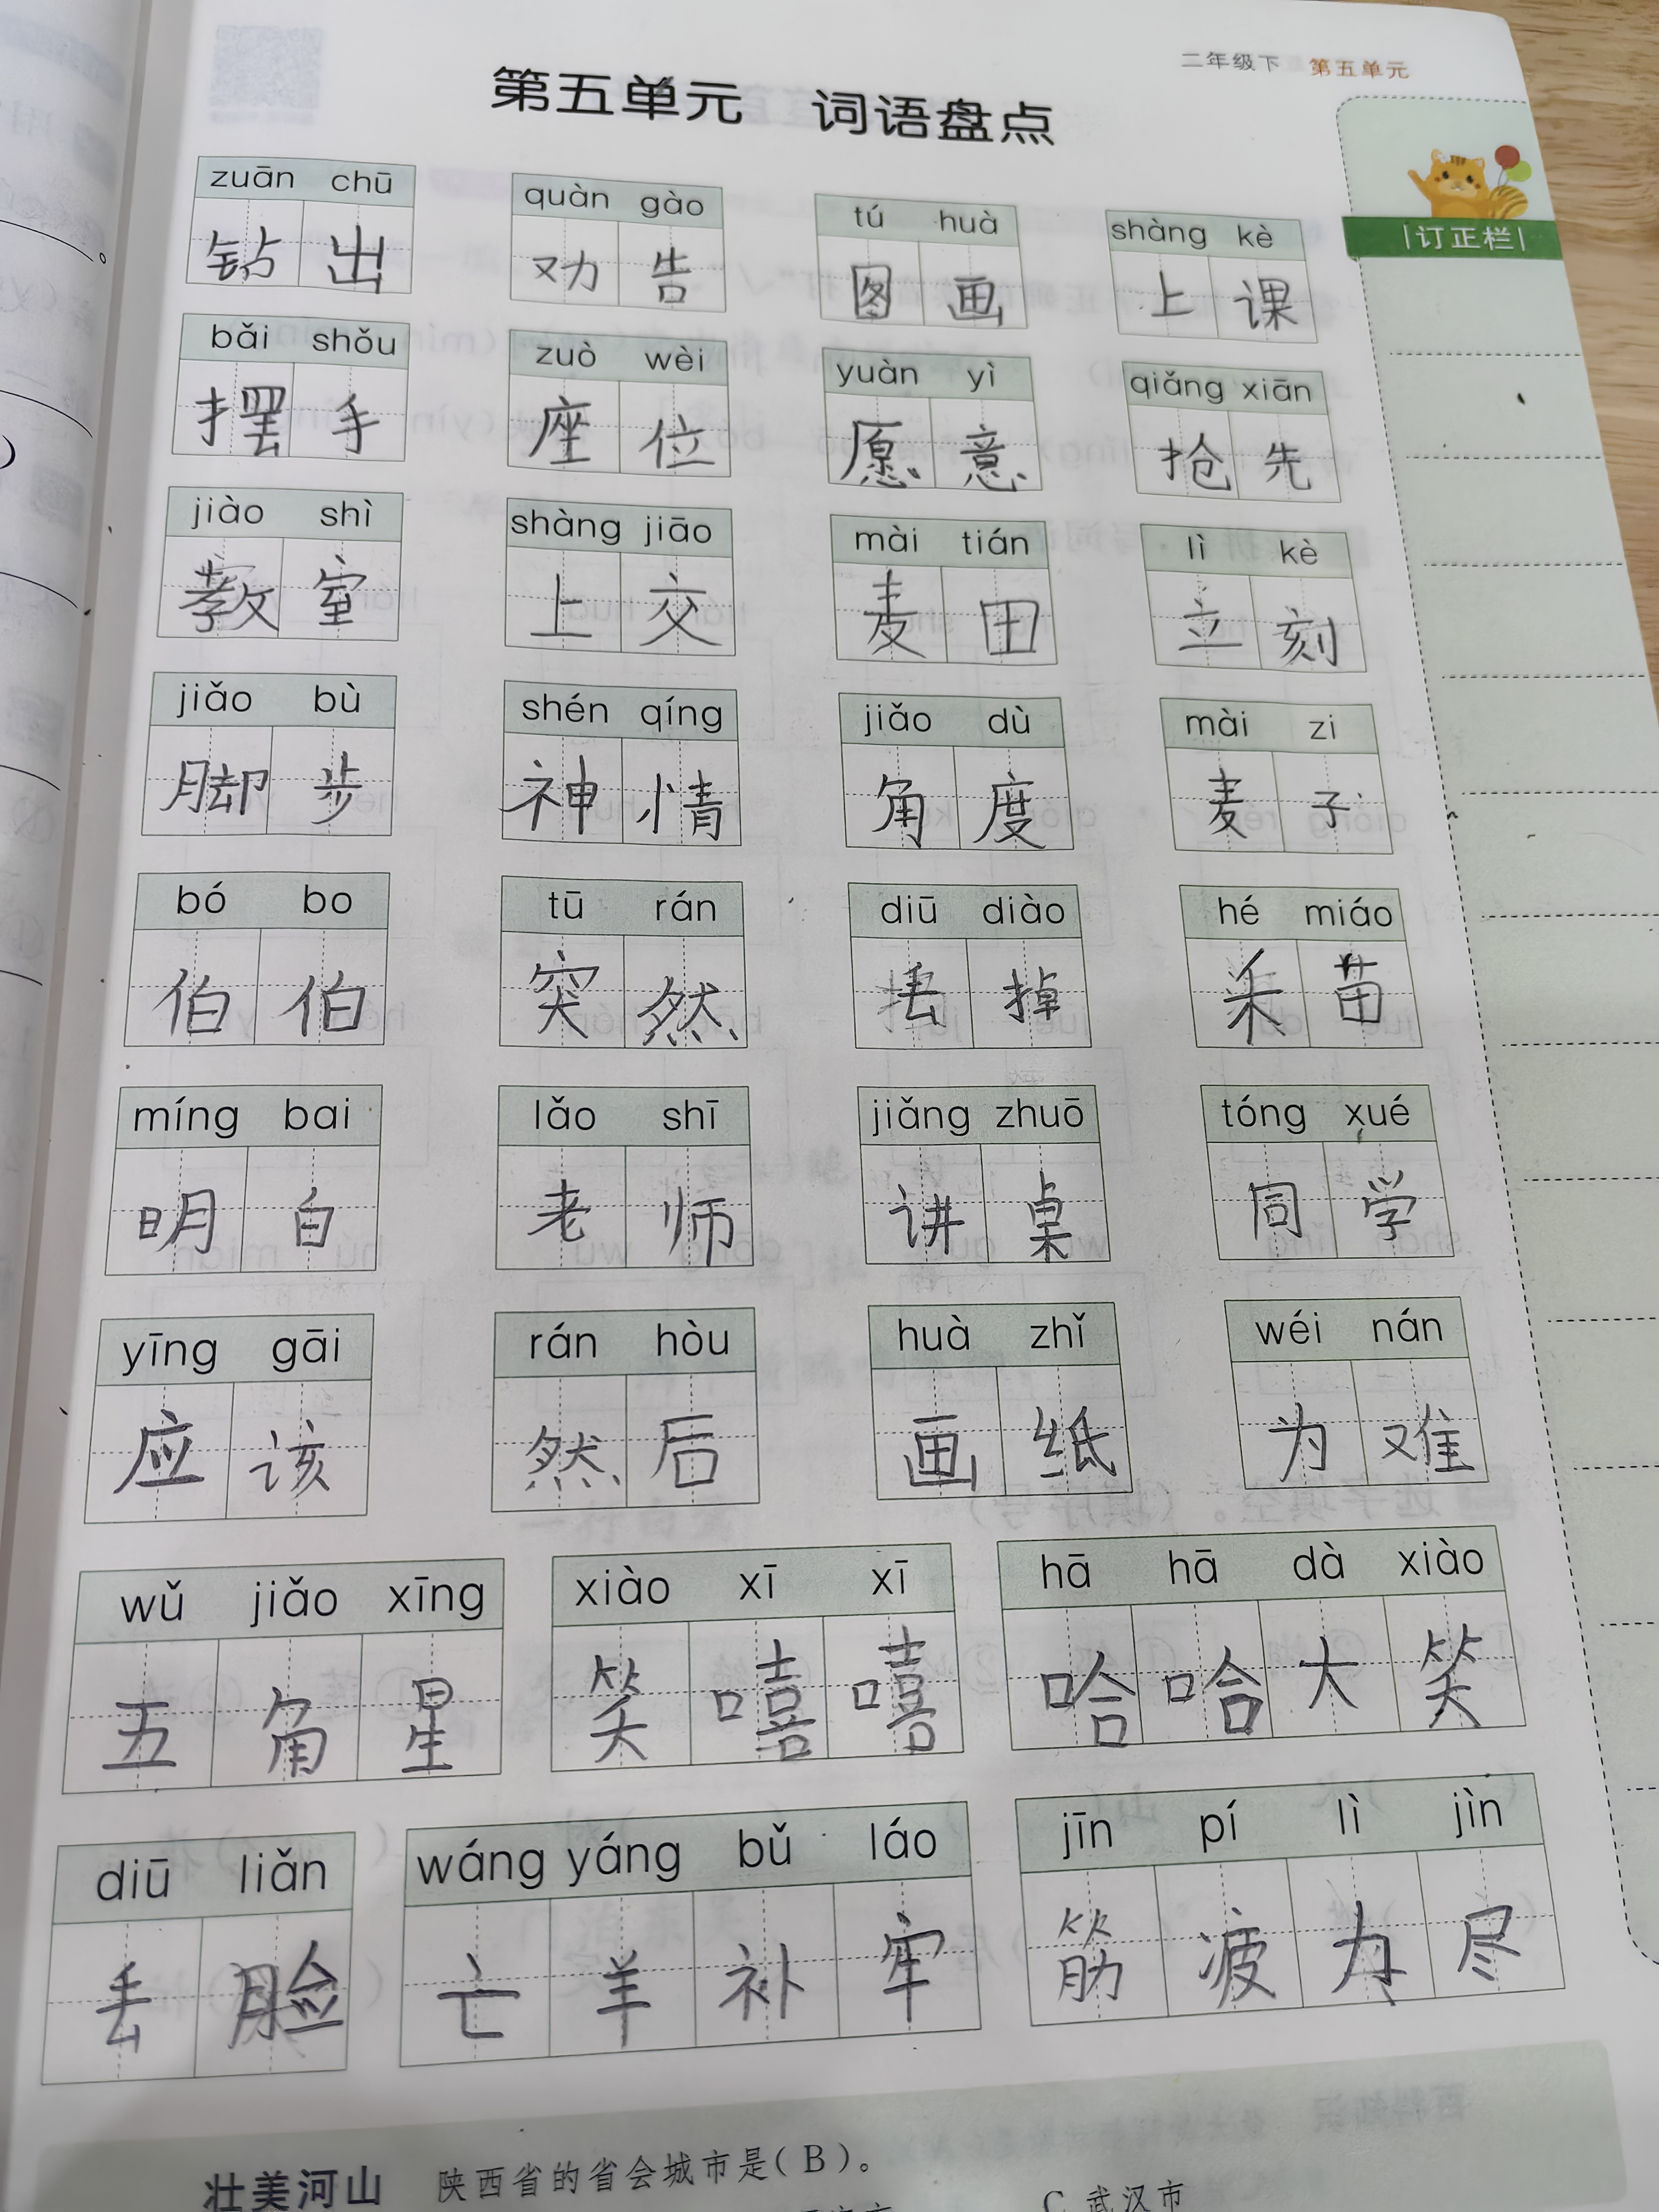 二年级下 第五单元
第五单元 词语盘点
订正栏
zuān chū quàn gào tú huà shàng kè
钻出 劝告 图画 上课
bǎi shǒu zuò wèi yuàn yì qiǎng xiān
摆手 座位 愿意 抢先
jiào shì shàng jiāo mài tián lì kè
教室 上交 麦田 立刻
jiǎo bù shén qíng jiǎo dù mài zi
脚步 神情 角度 麦子
bó bo tū rán diū diào hé miáo
伯伯 突然 丢掉 禾苗
míng bai lǎo shī jiǎng zhuō tóng xué
明白 老师 讲桌 同学
yīng gāi rán hòu huà zhǐ wéi nán
应该 然后 画纸 为难
wǔ jiǎo xīng xiào xī xī hā hā dà xiào
五角星 笑嘻嘻 哈哈大笑
diū liǎn wáng yáng bǔ láo jīn pí lì jìn
丢脸 亡羊补牢 筋疲力尽
壮美河山 陕西省的省会城市是(B)。
C 武汉市